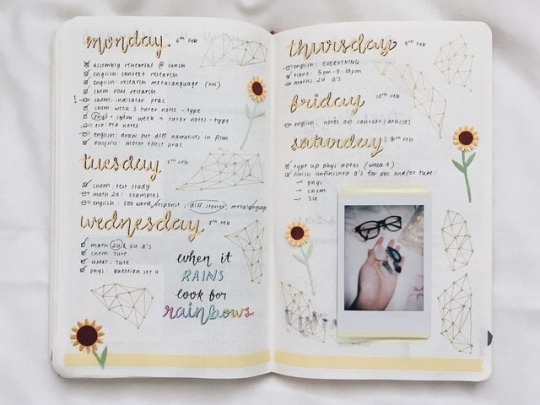 monday. 6th Feb
assembly rehearsal @ lunch
english context research
english: research metalanguage
chem: research
chem: indicator prac
chem week 5 tutor notes - type
phys: week tutor notes - type
notes
english: draw out diff narratives in film
physics: motor effect prac
tuesday 7th Feb
chem: test study
math 2U: examples
english: 500 word response: diff stories, metalanguage
wednesday. 8th Feb
math 2U Q's
chem: tute
UMAT: tute
phys: question set 4
when it
RAINS
look for
rainbows
thursday 9th Feb
english: EVERYTHING
piano: 5pm - 5:10pm
maths 2U Q's
friday 10th Feb
english: notes on context (articles)
saturday
type up phys notes (week 4)
finish unfinished Q's for doc and/or tute:
→ phys
→ chem
→ 3U